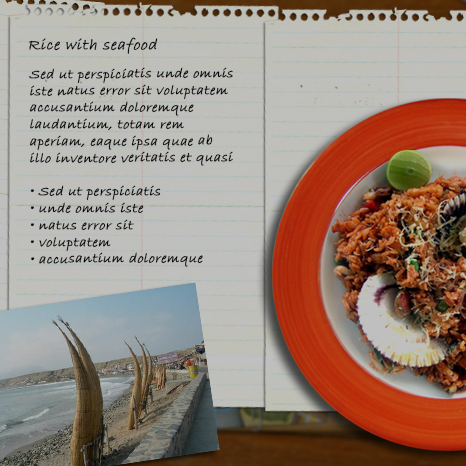 Rice with seafood
Sed ut perspiciatis unde omnis
iste natus error sit voluptatem
accusantium doloremque
laudantium, totam rem
aperiam, eaque ipsa quae ab
illo inventore veritatis et quasi
• Sed ut perspiciatis
• unde omnis iste
• natus error sit
• voluptatem
• accusantium doloremque